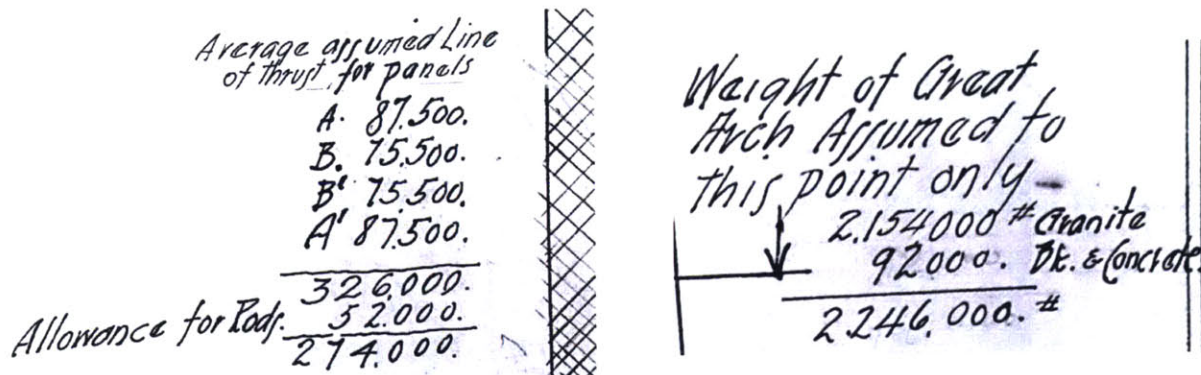 Average assumed Line
of thrust for panels
A. 87.500.
B. 75.500.
B' 75.500.
A' 87.500.
326.000.
Allowance for Rods. 52.000.
274.000.
Weight of Great
Arch Assumed to
this point only
2.154000 # Granite
92000. Bk. & Concrete.
2.246.000. #